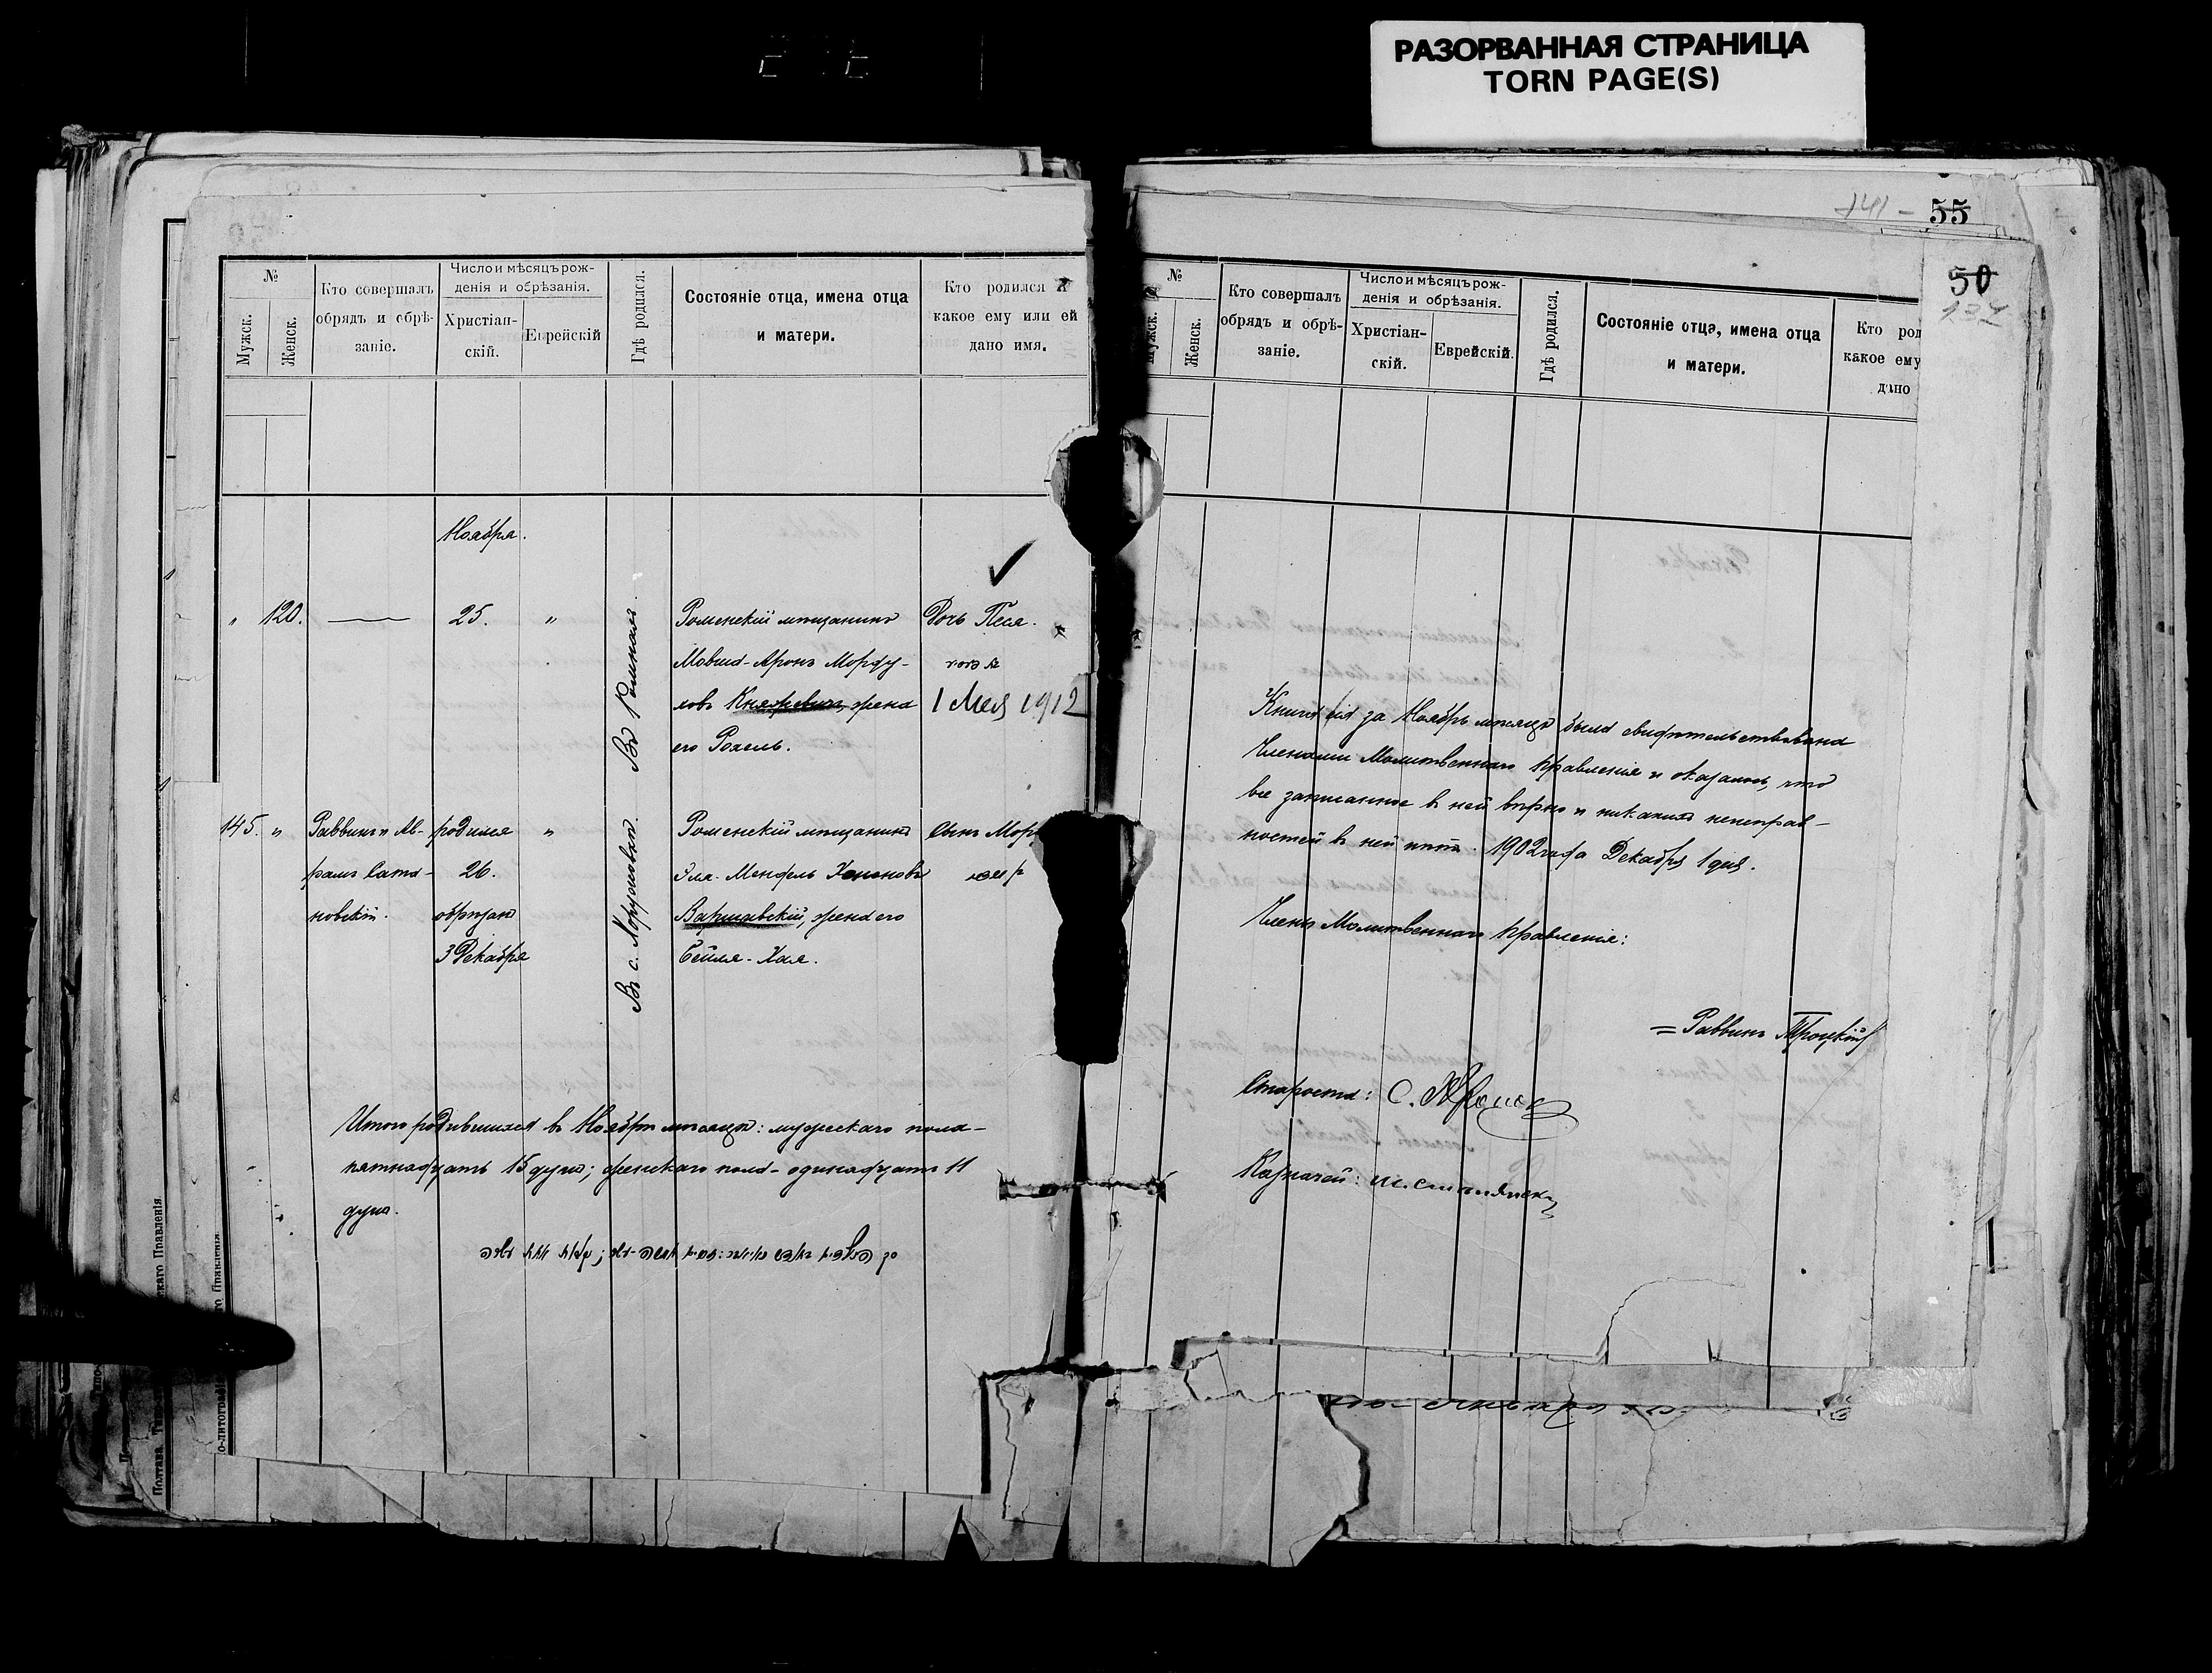 РАЗОРВАННАЯ СТРАНИЦА
TORN PAGE(S)
141 - 55
№
Мужск.
Женск.
Кто совершалъ
обрядъ и обрѣ-
заніе.
Число и мѣсяцъ рож-
денія и обрѣзанія.
Христіан-
скій.
Еврейскій
Гдѣ родился.
Состояніе отца, имена отца
и матери.
Кто родился и
какое ему или ей
дано имя.
Ноября.
" 120. 25. "
Въ Ромнахъ.
Роменскій мѣщанинъ
Мовша-Аронъ Морду-
ховъ Княжевичъ, жена
его Рохель.
Дочь Песя.
1 Мая 1912
145. "
Раввинъ Ав-
рамъ Сата-
новскій.
родился
26.
обрѣзанъ
3 Декабря
"
Въ с. Хоружовкѣ.
Роменскій мѣщанинъ
Эля-Мендель Хононовъ
Варшавскій, жена его
Бейля-Хая.
Сынъ Мор
Итого родившихся въ Ноябрѣ мѣсяцѣ: мужескаго пола-
пятнадцать 15 душъ; женскаго пола- одинадцать 11
душъ.
№
Мужск.
Женск.
Кто совершалъ
обрядъ и обрѣ-
заніе.
Число и мѣсяцъ рож-
денія и обрѣзанія.
Христіан-
скій.
Еврейскій.
Гдѣ родился.
Состояніе отца, имена отца
и матери.
Кто род
какое ему
дано
50
Книга сія за Ноябрь мѣсяцъ была свидѣтельствована
Членами Молитвеннаго Правленія и оказалось, что
все записанное въ ней вѣрно и никакихъ неисправ-
ностей въ ней нѣтъ. 1902 года Декабря 1 дня.
Члены Молитвеннаго Правленія:
= Раввинъ Троцкій
Староста: С.
Казначей: